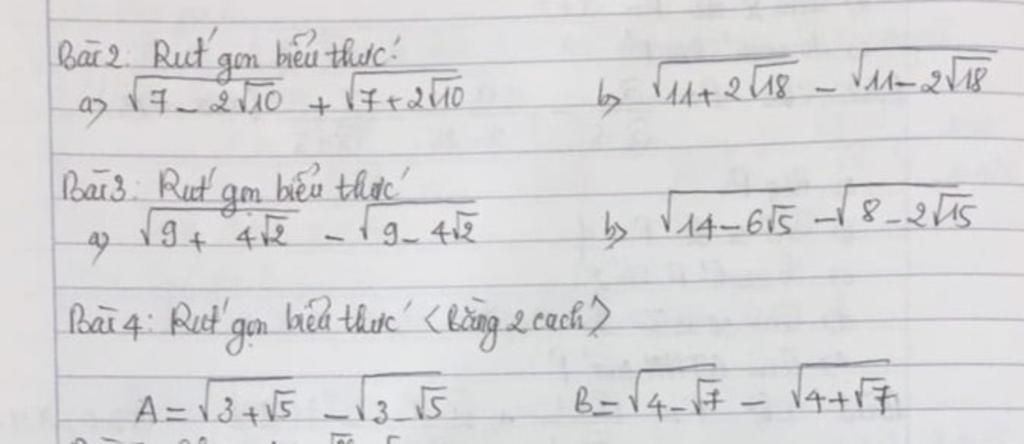 Bài 2: Rút gọn biểu thức:
a) √(7 - 2√10) + √(7 + 2√10) b) √(11 + 2√18) - √(11 - 2√18)
Bài 3: Rút gọn biểu thức
a) √(9 + 4√2) - √(9 - 4√2) b) √(14 - 6√5) - √(8 - 2√15)
Bài 4: Rút gọn biểu thức (Bằng 2 cách)
A = √(3 + √5) - √(3 - √5) B = √(4 - √7) - √(4 + √7)